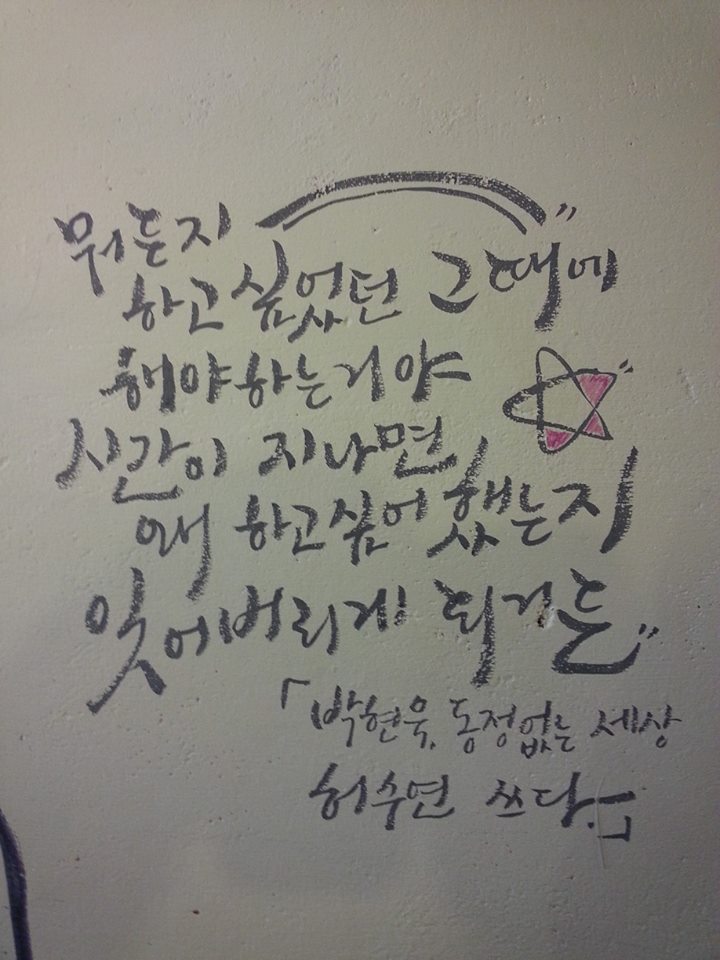 뭐든지
하고싶었던 그때에
해야하는거야
시간이 지나면
왜 하고싶어했는지
잊어버리게 되거든
「박현욱, 동정없는 세상
허수연 쓰다.」